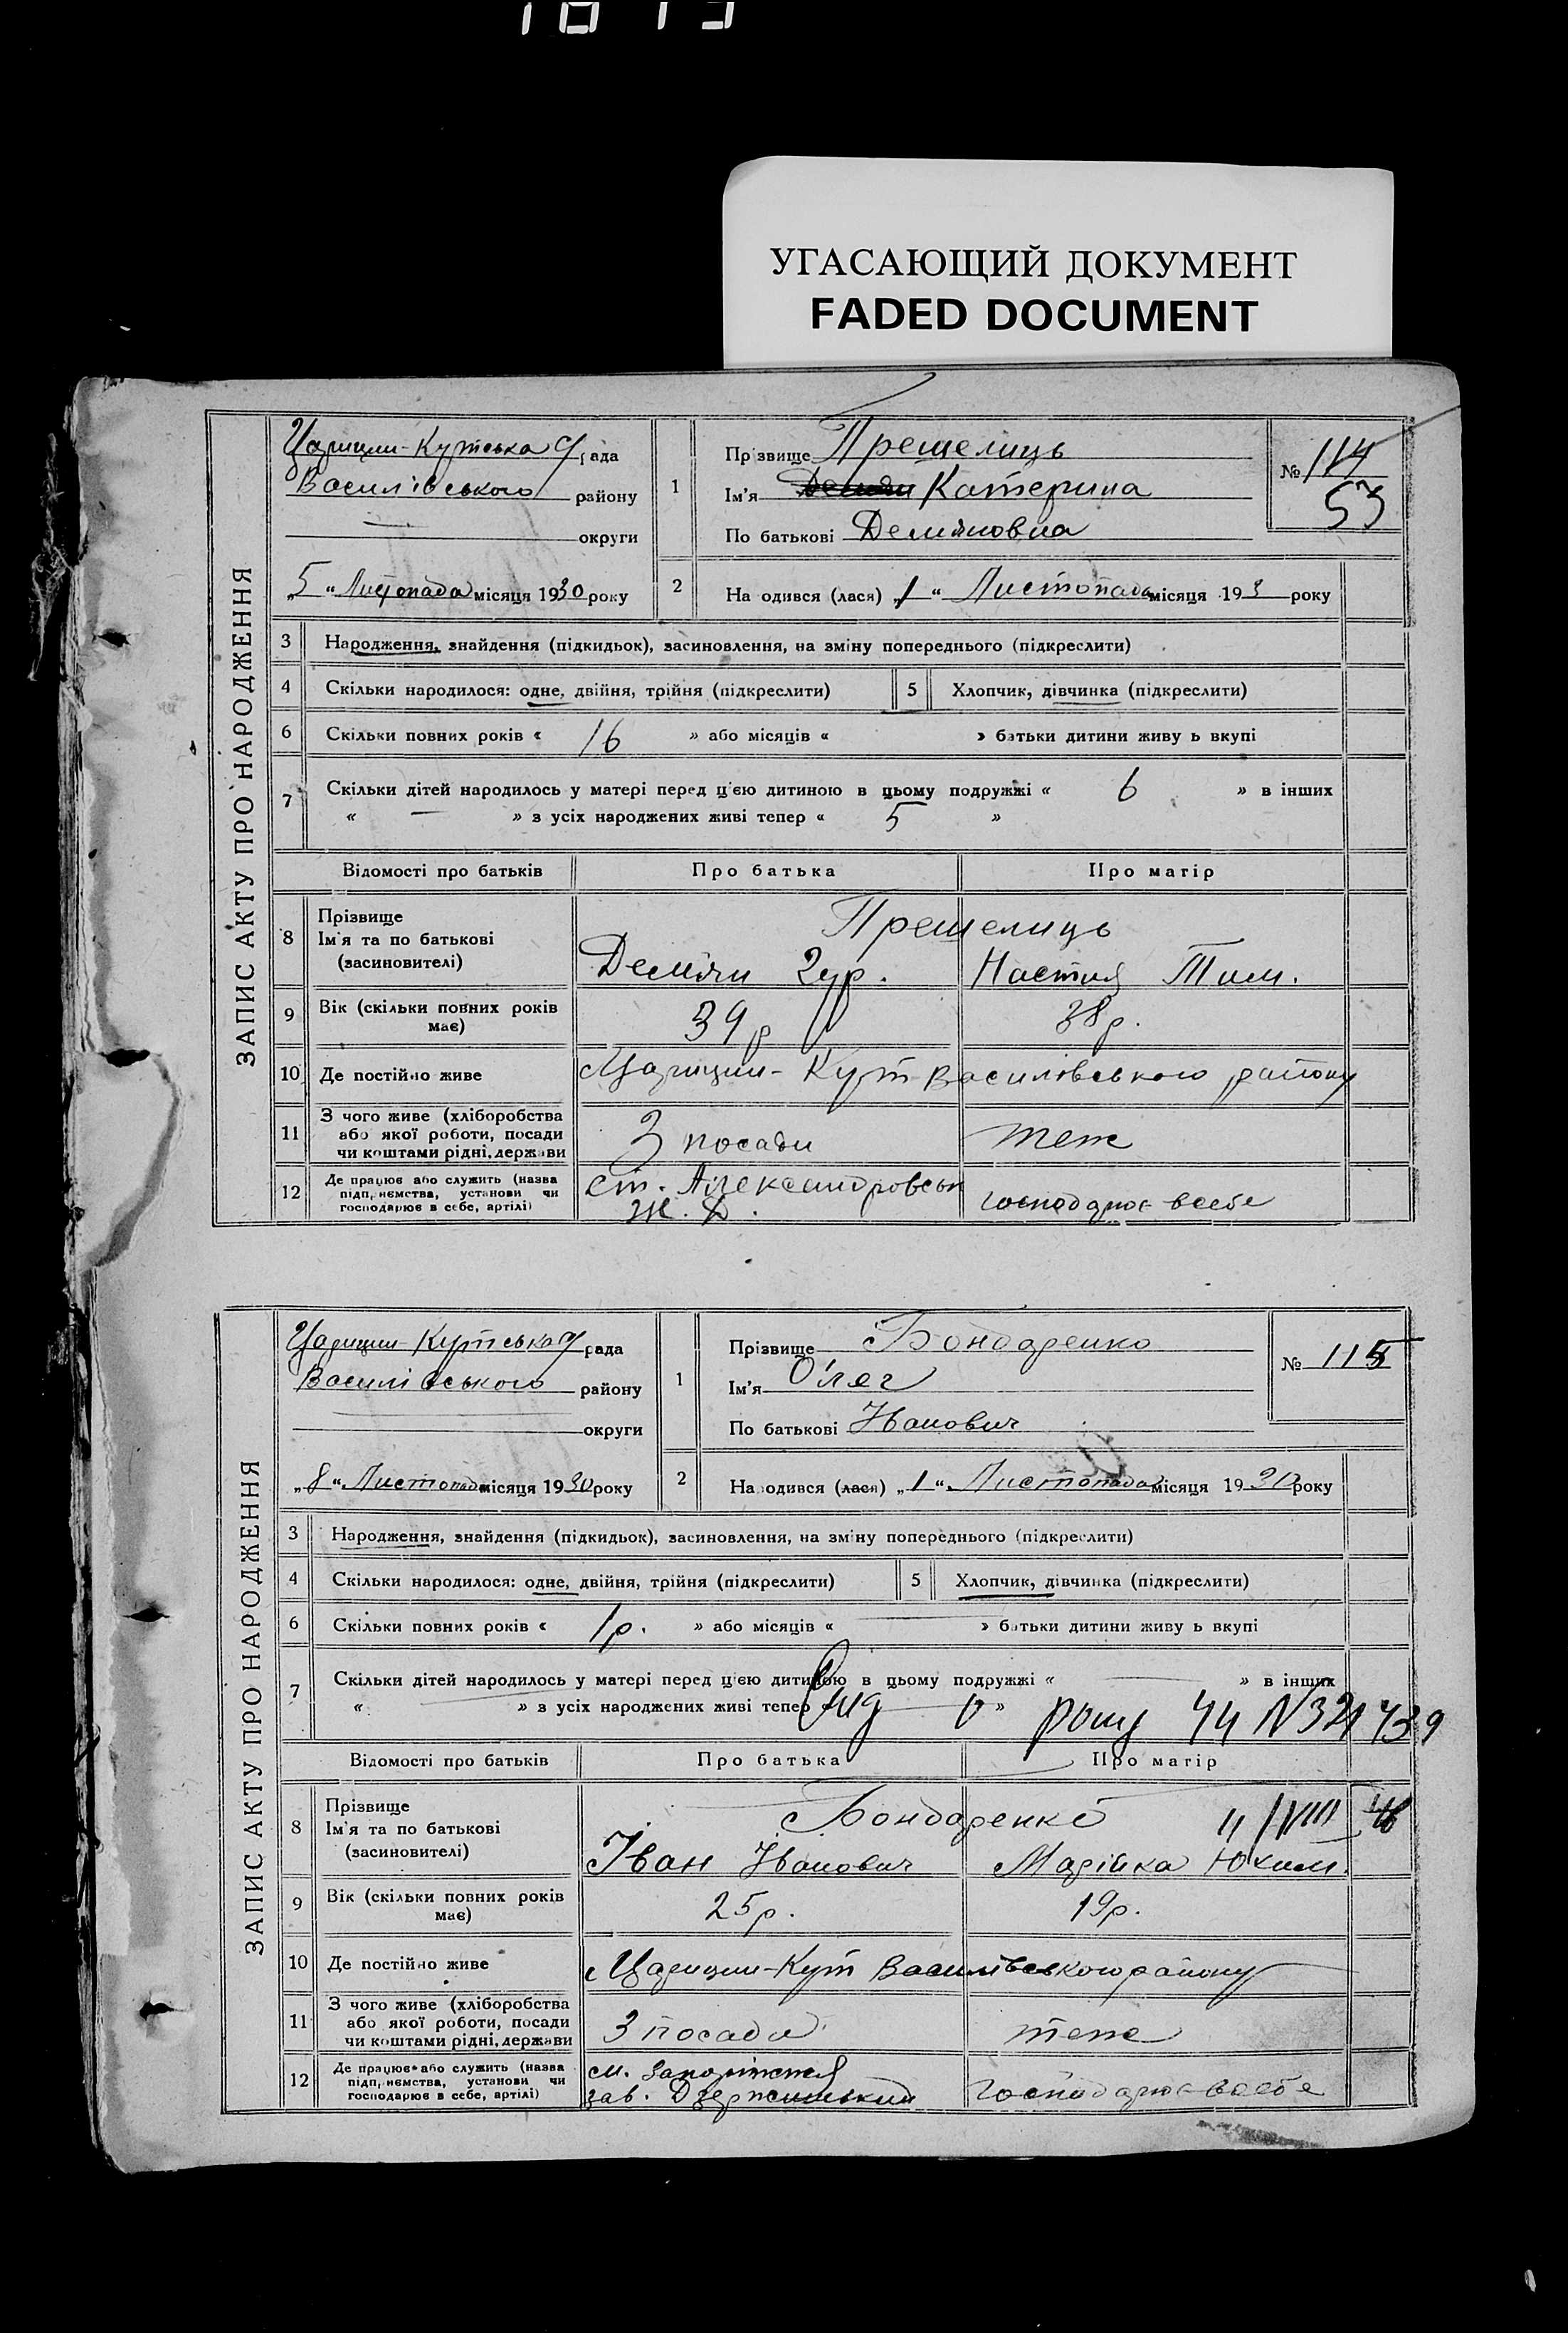 УГАСАЮЩИЙ ДОКУМЕНТ
FADED DOCUMENT
ЗАПИС АКТУ ПРО НАРОДЖЕННЯ
Царицин-Кутська с/рада
Василівського району
округи
„5“ Листопада місяця 1930 року
1
Прізвище Прешелиць
Ім'я Демян Катерина
По батькові Демяновна
№ 114
53
2
На одився (лася) „1“ Листопада місяця 193 року
3 Народження, знайдення (підкидьок), засиновлення, на зміну попереднього (підкреслити)
4 Скільки народилося: одне, двійня, трійня (підкреслити) 5 Хлопчик, дівчинка (підкреслити)
6 Скільки повних років « 16 » або місяців « » батьки дитини живу ь вкупі
7 Скільки дітей народилось у матері перед ц'єю дитиною в цьому подружжі « 6 » в інших
« — » з усіх народжених живі тепер « 5 »
Відомості про батьків Про батька Про матір
8 Прізвище
Ім'я та по батькові
(засиновителі)
Прешелиць
Демян Гур. Настия Тим.
9 Вік (скільки повних років
має)
39 р 38 р.
10 Де постійно живе Царицин-Кут Василівського району
11 З чого живе (хліборобства
або якої роботи, посади
чи коштами рідні, держави
З посади теж
12 Де працює або служить (назва
підприємства, установи чи
господарює в себе, артілі)
ст. Александровськ
Ж. Д.
господарює всебе
ЗАПИС АКТУ ПРО НАРОДЖЕННЯ
Царицин-Кутська с/рада
Василівського району
округи
„8“ Листопада місяця 1930 року
1
Прізвище Бондаренко
Ім'я Олег
По батькові Іванович
№ 115
2
На одився (лася) „1“ Листопада місяця 1930 року
3 Народження, знайдення (підкидьок), засиновлення, на зміну попереднього (підкреслити)
4 Скільки народилося: одне, двійня, трійня (підкреслити) 5 Хлопчик, дівчинка (підкреслити)
6 Скільки повних років « 1 р. » або місяців « — » батьки дитини живу ь вкупі
7 Скільки дітей народилось у матері перед ц'єю дитиною в цьому подружжі « — » в інших
« — » з усіх народжених живі тепер »
44 N 321439
Відомості про батьків Про батька Про матір
8 Прізвище
Ім'я та по батькові
(засиновителі)
Бондаренко
Іван Іванович Марійка Юхим.
9 Вік (скільки повних років
має)
25 р. 19 р.
10 Де постійно живе Царицин-Кут Василівського району
11 З чого живе (хліборобства
або якої роботи, посади
чи коштами рідні, держави
З посади теж
12 Де працює або служить (назва
підприємства, установи чи
господарює в себе, артілі)
м. Запоріжжя
зав. Дзержинський
господарює всебе